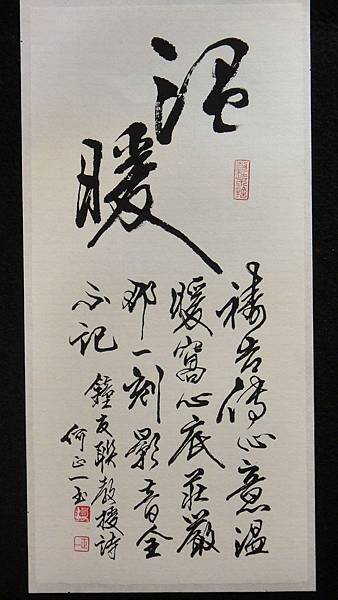 溫暖
禱告傳心意溫
暖窩心底莊嚴
那一刻影音全
不記
鐘友聯教授詩
何正一書